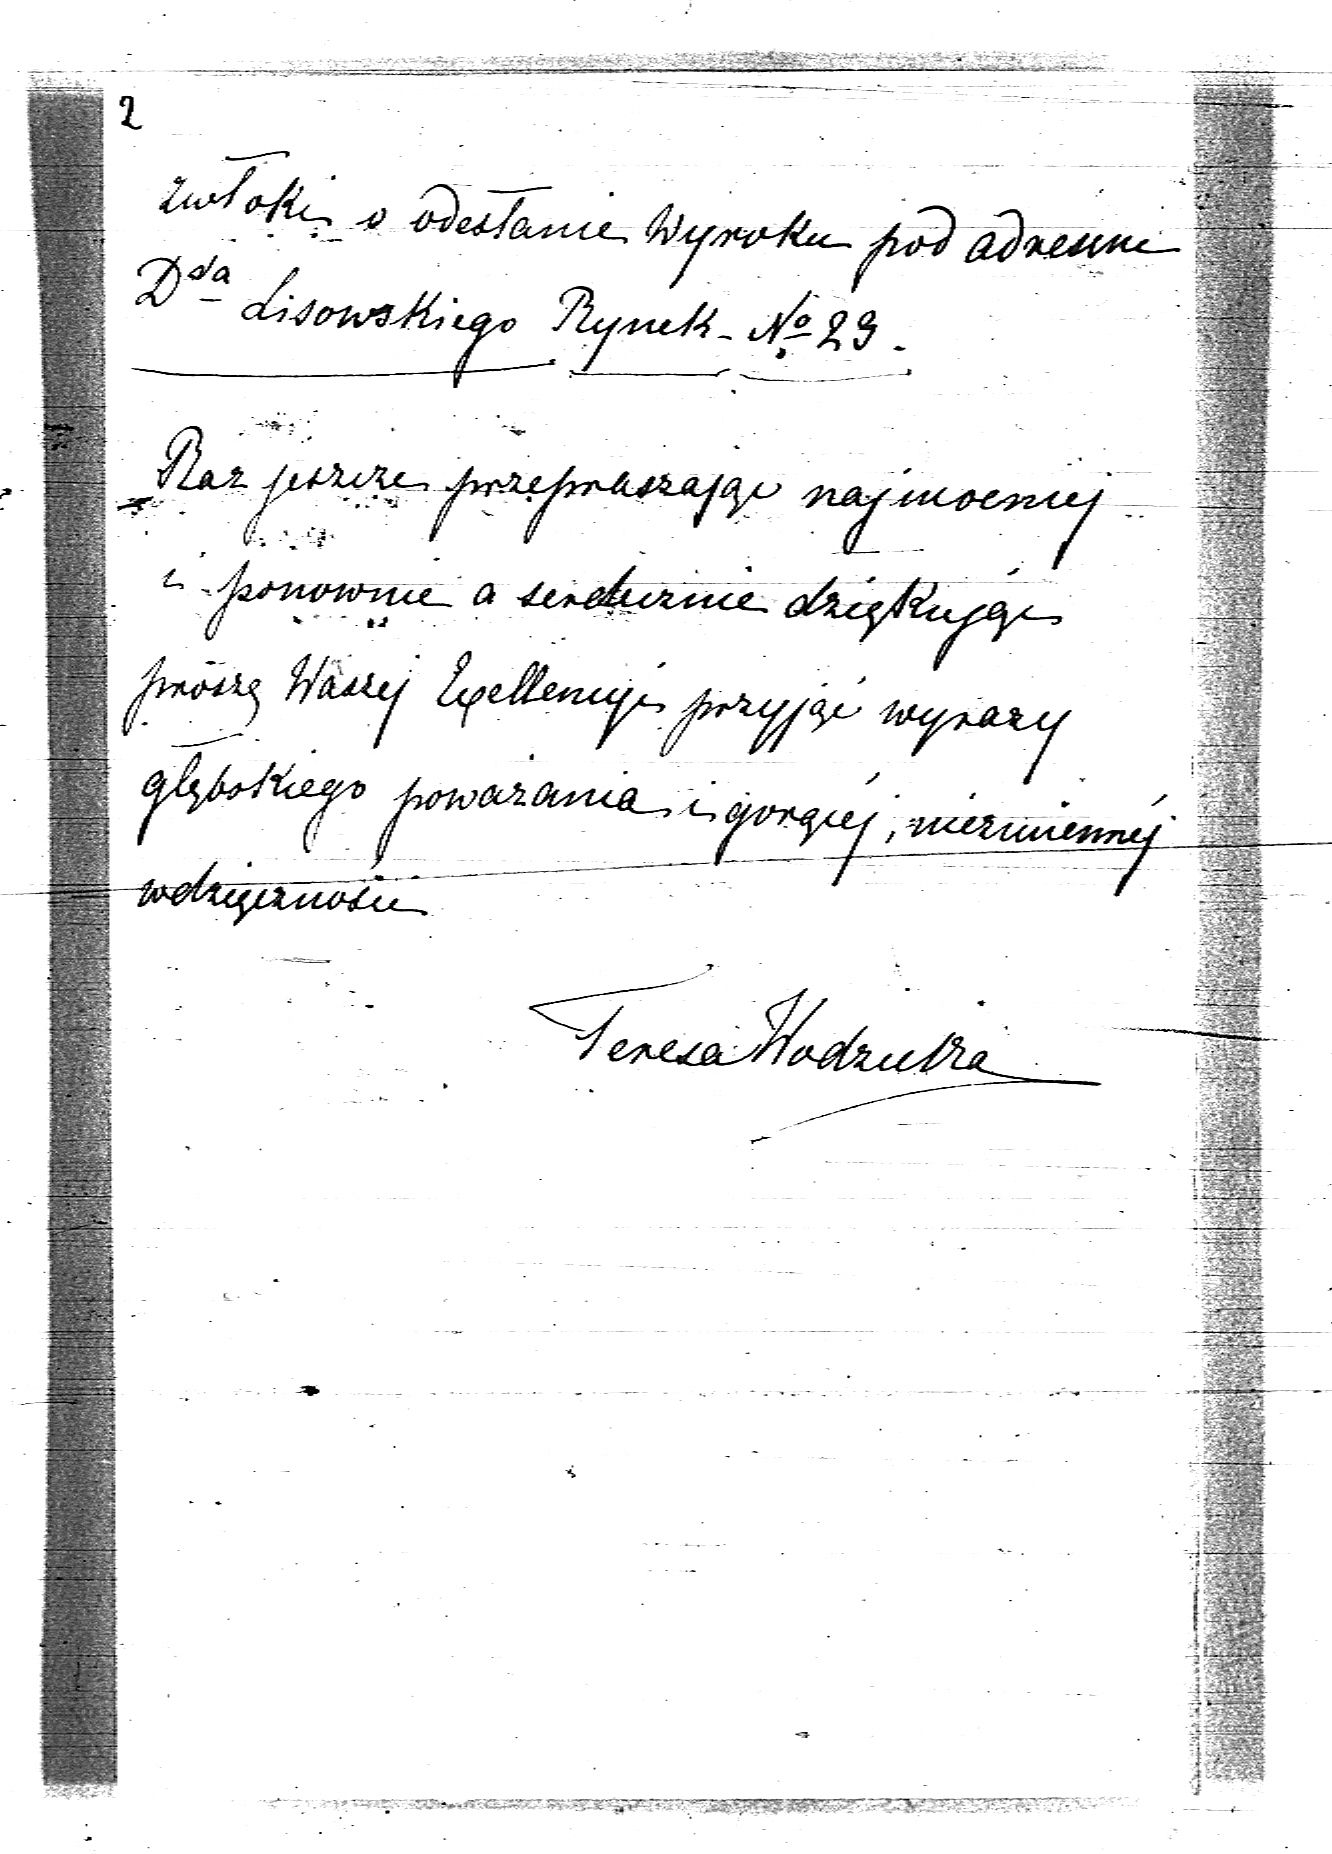 2
zwłoki o odesłanie Wyroku pod adresem
Dra Lisowskiego Rynek - No 23.
Raz jeszcze przepraszając najmocniej
i ponownie a serdecznie dziękując
proszę Waszej Excellencyi przyjąć wyrazy
głębokiego poważania i gorącéj, niezmiennéj
wdzięczności
Teresa Wodzicka